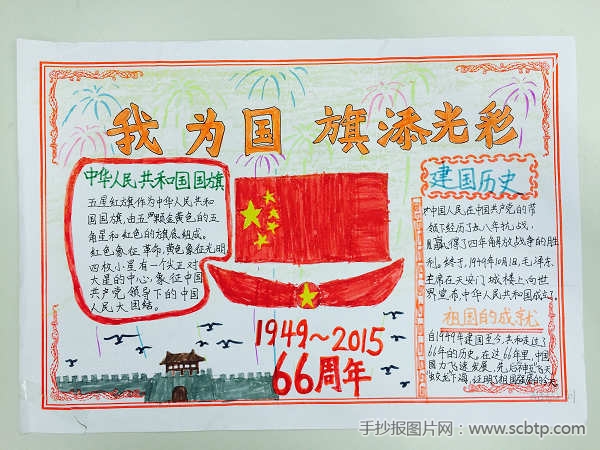 我为国旗添光彩
中华人民共和国国旗
五星红旗作为中华人民共和
国国旗,由五颗金黄色的五
角星和红色的旗底组成。
红色象征革命,黄色象征光明,
四枚小星有一个尖正对
大星的中心,象征中国
共产党领导下的中国
人民大团结。
1949~2015
66周年
建国历史
中国人民在中国共产党的带
领下经历了八年抗战,
赢得了四年解放战争的胜
利。终于,1949年10月1日,毛泽东
主席在天安门城楼上向世
界宣布,中华人民共和国成立了。
祖国的成就
自1949年建国至今,共和走过了
66年的历史。在这66年里,中国
国力飞速发展,先后神飞天
蛟龙下海,证明了祖国强展的
手抄报图片网:www.scbtp.com